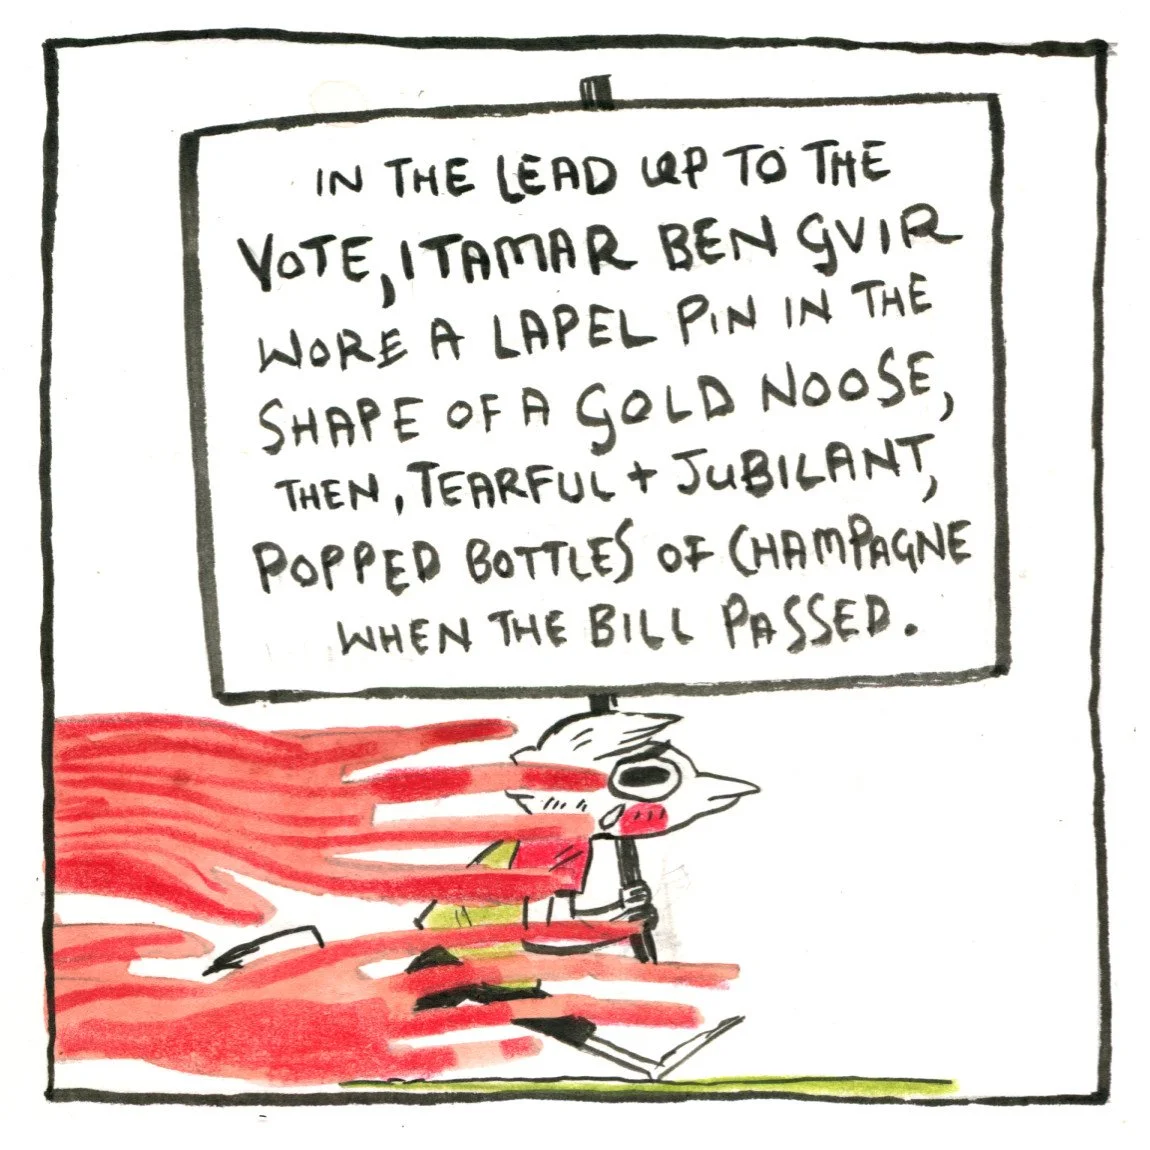 IN THE LEAD UP TO THE
VOTE, ITAMAR BEN GVIR
WORE A LAPEL PIN IN THE
SHAPE OF A GOLD NOOSE,
THEN, TEARFUL + JUBILANT,
POPPED BOTTLES OF CHAMPAGNE
WHEN THE BILL PASSED.